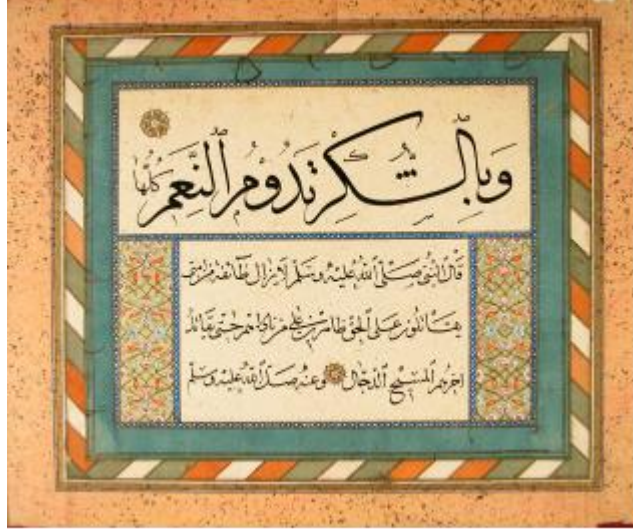 وَبِالشُّكْرِ تَدُوْمُ النِّعَمُ كُلُّهَا
قال النبي صلى الله عليه وسلم لا تزال طائفة من امتي
يقاتلون على الحق ظاهرين على من ناواهم حتى يقاتل
اخرهم المسيح الدجال وعنه صلى الله عليه وسلم